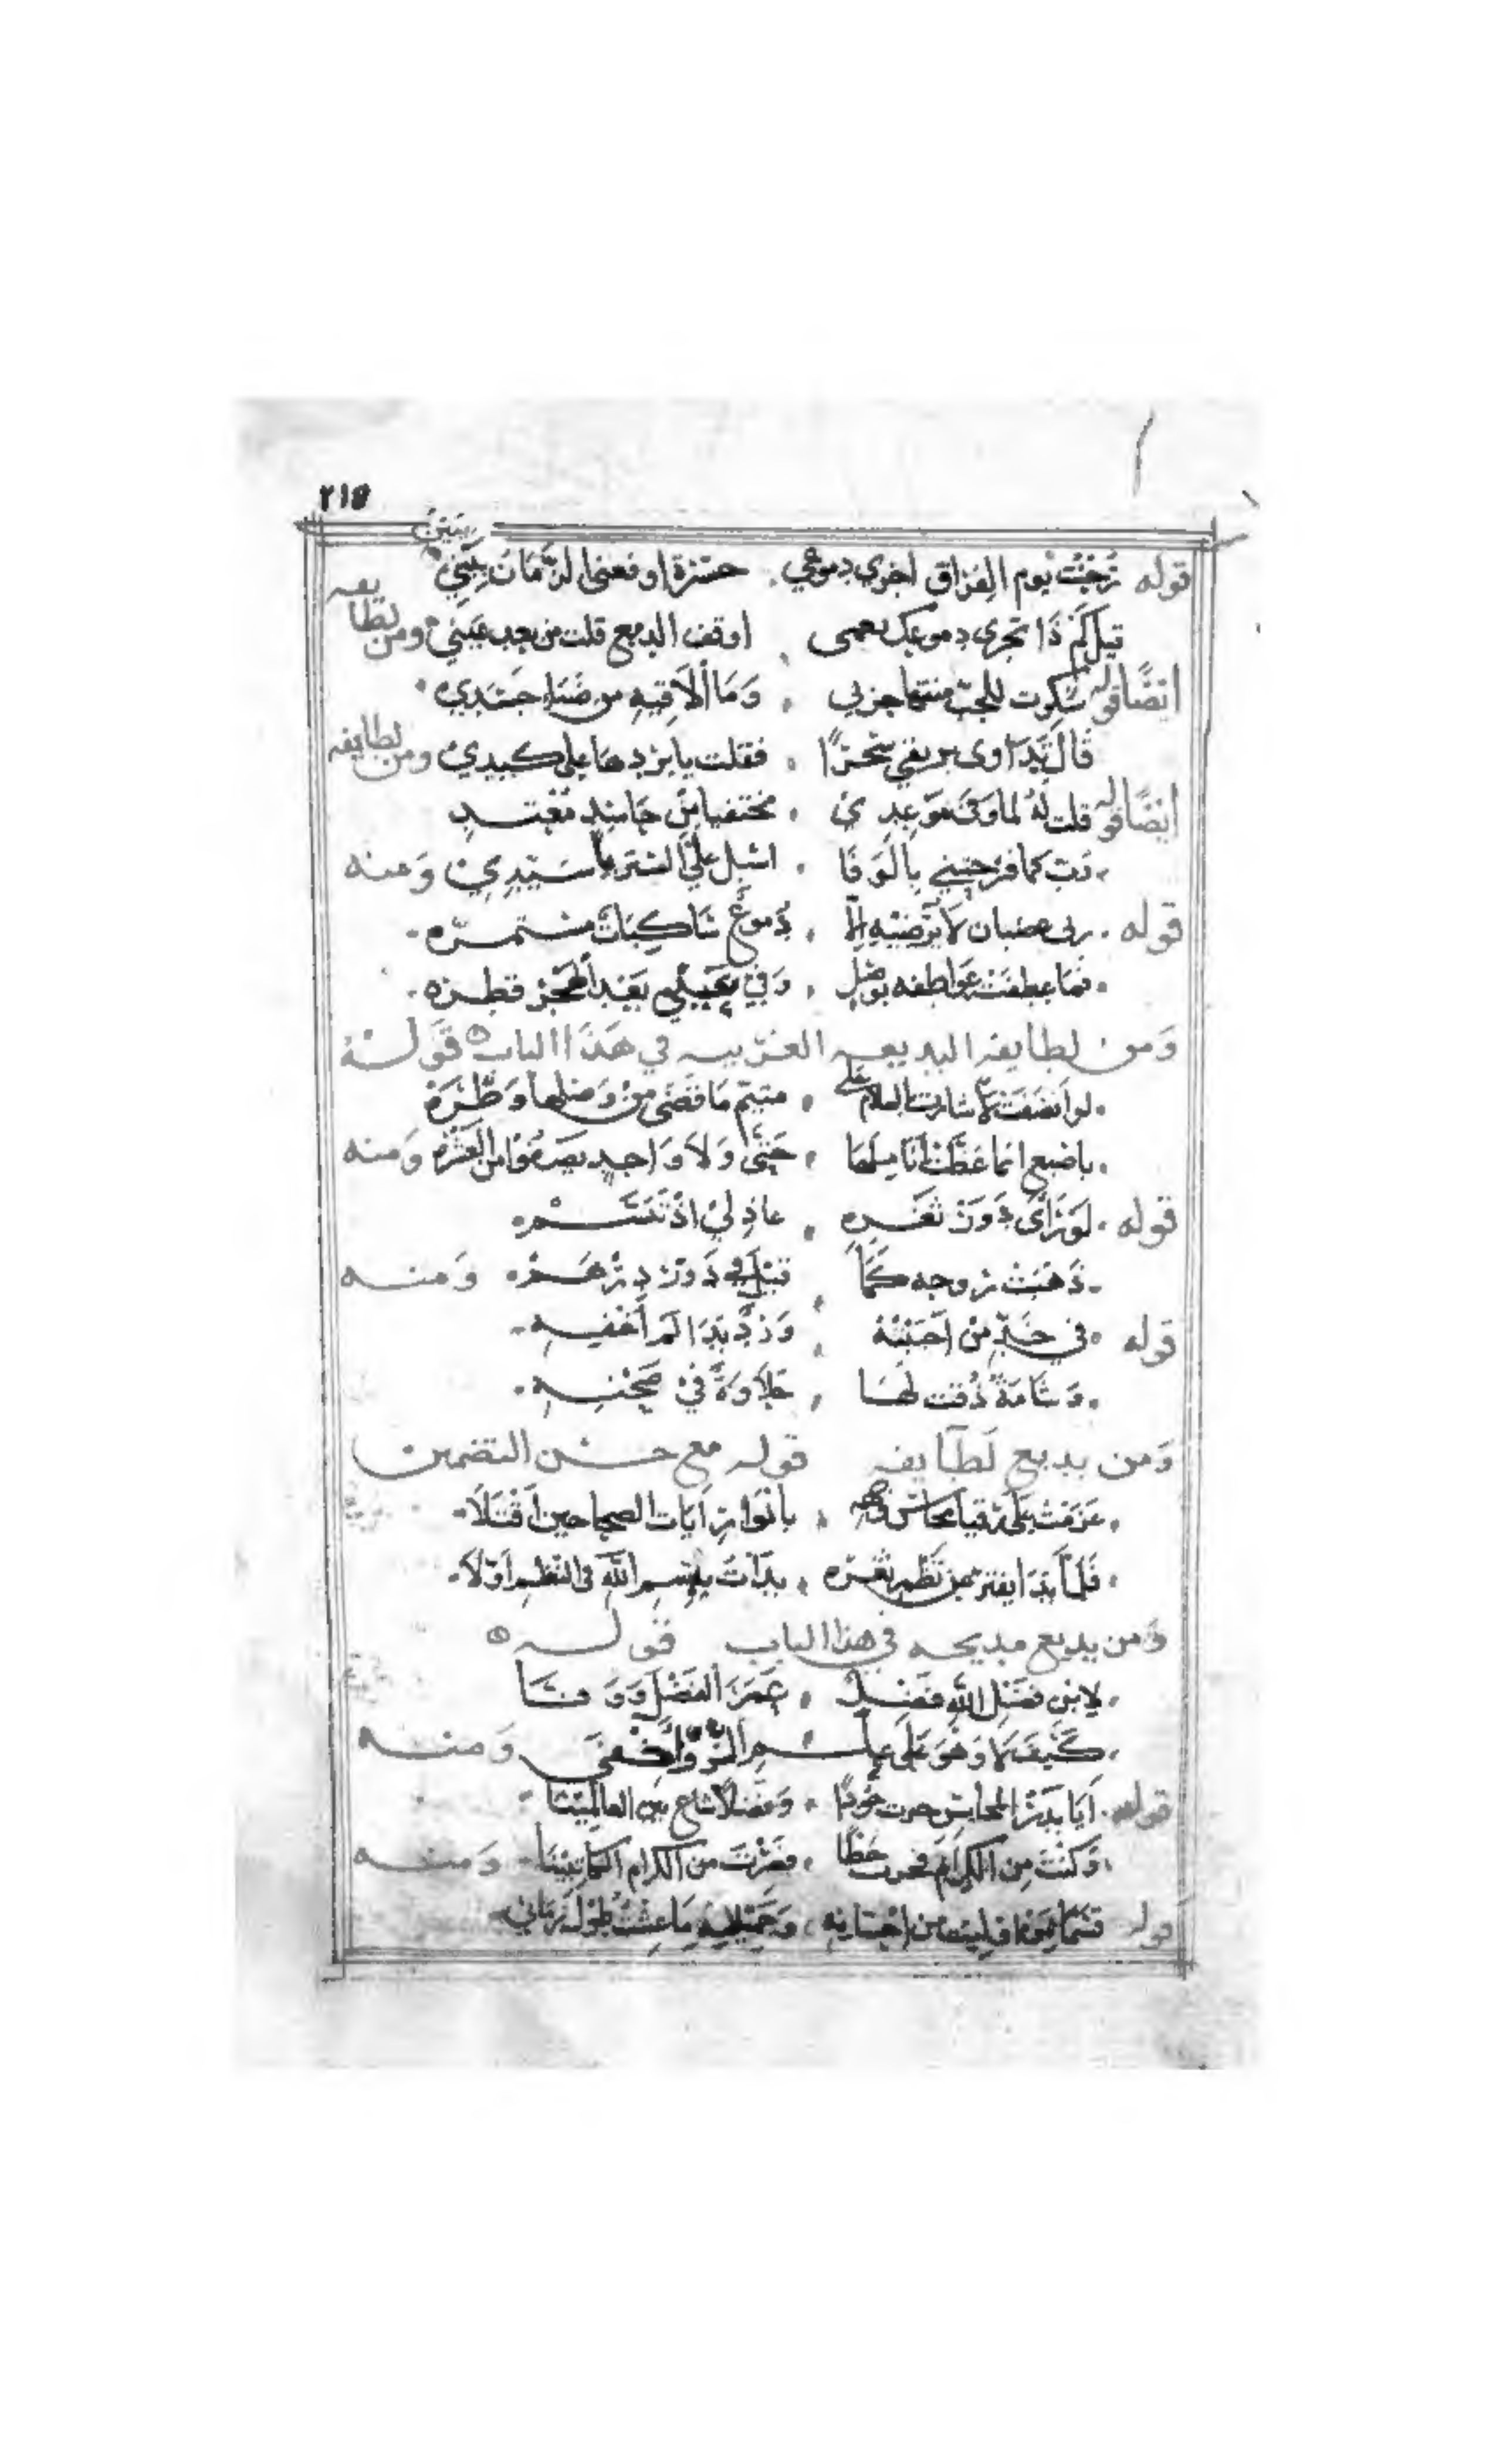 ٢١٥
قوله رحت يوم الفراق اجري دموعي حسرة اوقعني الزمان ببيني
قيل كم ذا تجري دموعك تعمى اوقف الدمع قلت من بعد عيني ومن لطايفه
ايضا قوله شكوت للحب منتهى حزني وما ألاقيه من ضنا جسدي
قال تداوى بريقي سحرا فقلت يا بردها على كبدي ومن لطايفه
ايضا قوله قلت له لما وفى موعدي مختفيا من حاسد معتد
دب كما فرحتني بالوفا اسبل علي الستر يا سيدي ومنه
قوله بي غضبان لا يرضيه إلا دموع ساكبات مستمره
فما عطفت عواطفه بوصل وفي عيني بعد الهجر قطره
ومن لطايفه البديعه الغريبه في هذا الباب قوله
لو أنصفت لأشارت بالسلام على متيم ما قضى من وصلها وطره
باصبع انما عضت أناملها حتى ولا واحد يصفوا من العشره ومنه
قوله لو رأى دون ثغره عاذلي اذ تبسمه
ذهبت روحه كما قيل في دون درهمه ومنه
قوله في خد من احببته ورد بدا لم أخفه
وشامة ذقت لها حلاوة في صحنه
ومن بديع لطايفه قوله مع حسن التضمين
عزمت على رقيا محاسن وجهه بأنوار آيات الصحاحين اقبلا
فلما بدا يفتر عن نظم ثغره بدأت ببسم الله في النظم أولا
ومن بديع مديحه في هذا الباب قوله
لابن فضل الله فضل عمر الفضل ووفا
كيف لا وهو على علم السر وأخفى ومنه
قوله أيا بدر المحاسن حزت جودا وفضلا شاع بين العالمينا
وكنت من الكرام فحزت حظا فصرت من الكرام الكاتبينا ومنه
قوله قسما بما اوليت من احسانه وجميله ما عشت طول زماني